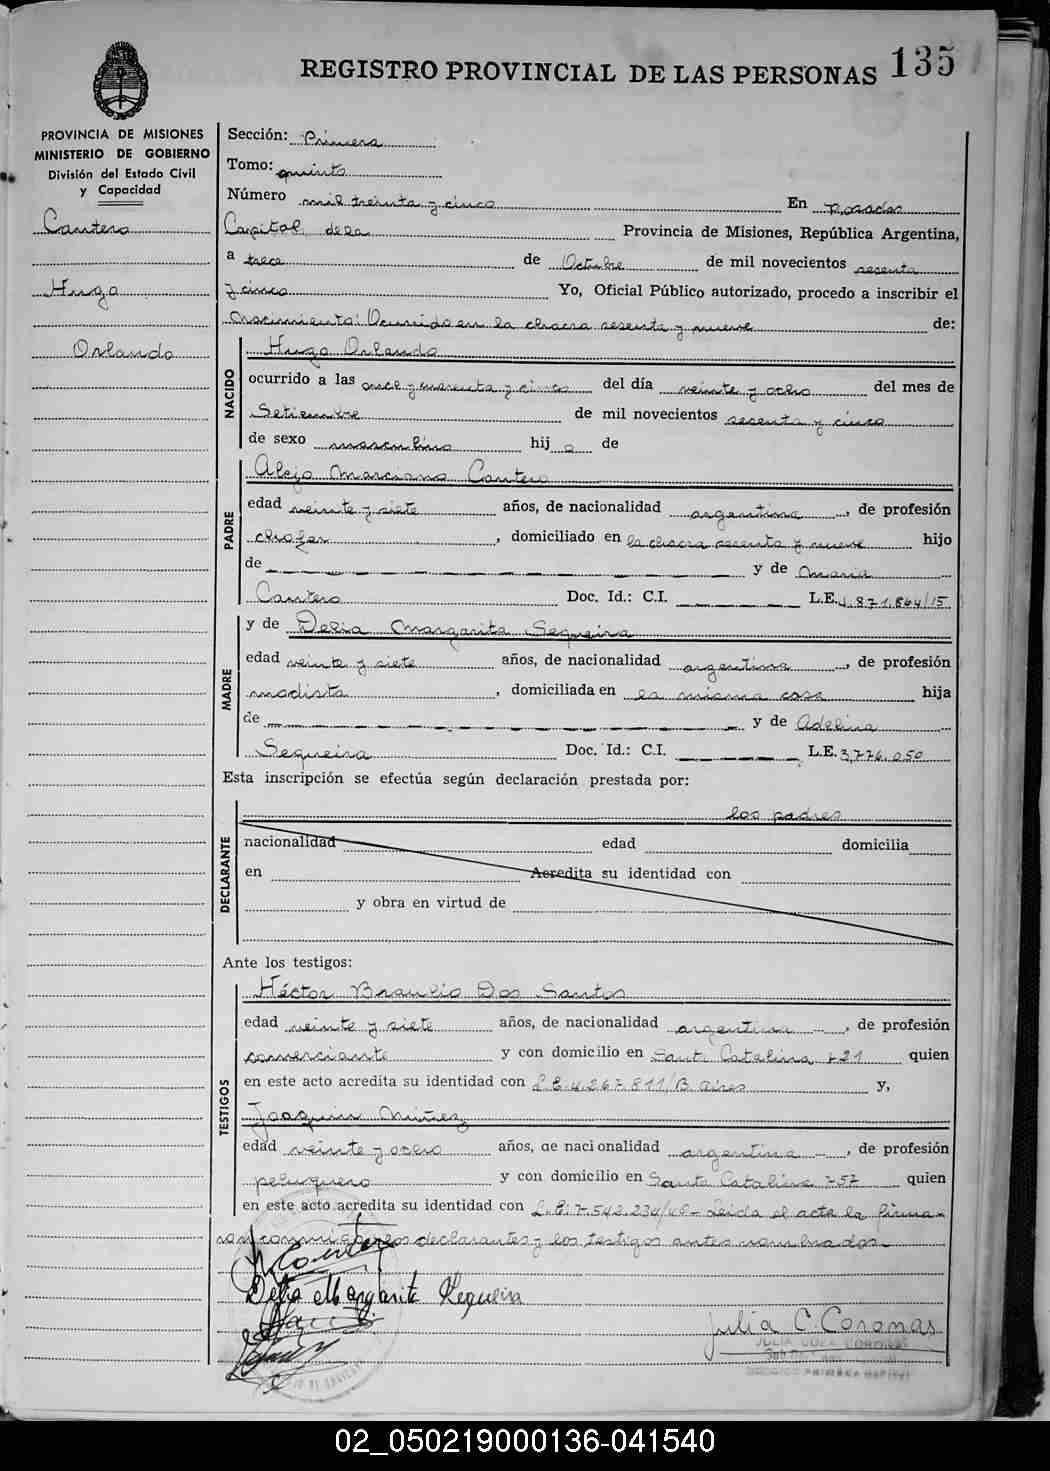 REGISTRO PROVINCIAL DE LAS PERSONAS 135
PROVINCIA DE MISIONES
MINISTERIO DE GOBIERNO
División del Estado Civil
y Capacidad
Cantero
Hugo
Orlando
Sección: Primera
Tomo: quinto
Número mil treinta y cinco En Posadas
Capital de la Provincia de Misiones, República Argentina,
a trece de Octubre de mil novecientos sesenta
y cinco Yo, Oficial Público autorizado, procedo a inscribir el
nacimiento: Ocurrido en la chacra sesenta y nueve de:
NACIDO
Hugo Orlando
ocurrido a las once y cuarenta y cinco del día veinte y ocho del mes de
Setiembre de mil novecientos sesenta y cinco
de sexo masculino hij o de
PADRE
Alejo Marciano Cantero
edad veinte y siete años, de nacionalidad argentina, de profesión
chofer, domiciliado en la chacra sesenta y nueve hijo
de y de Maria
Cantero Doc. Id.: C.I. L.E. 1.871.864/15
MADRE
y de Delia Margarita Sequeira
edad veinte y siete años, de nacionalidad argentina, de profesión
modista, domiciliada en la misma casa hija
de y de Adelina
Sequeira Doc. Id.: C.I. L.E. 3.776.050
Esta inscripción se efectúa según declaración prestada por:
DECLARANTE
los padres
nacionalidad edad domicilia
en Acredita su identidad con
y obra en virtud de
Ante los testigos:
TESTIGOS
Héctor Braulio Dos Santos
edad veinte y siete años, de nacionalidad argentina, de profesión
comerciante y con domicilio en Santa Catalina 721 quien
en este acto acredita su identidad con L.E. 4.267.811/B. Aires y,
Joaquin Núñez
edad veinte y ocho años, de nacionalidad argentina, de profesión
peluquero y con domicilio en Santa Catalina 757 quien
en este acto acredita su identidad con L.E: 7.542.234/48 - Leida el acta la firma-
ron conmigo los declarantes y los testigos antes nombrados.
Cantero
Delia Margarita Sequeira
Julia C. Coronas
02_050219000136-041540